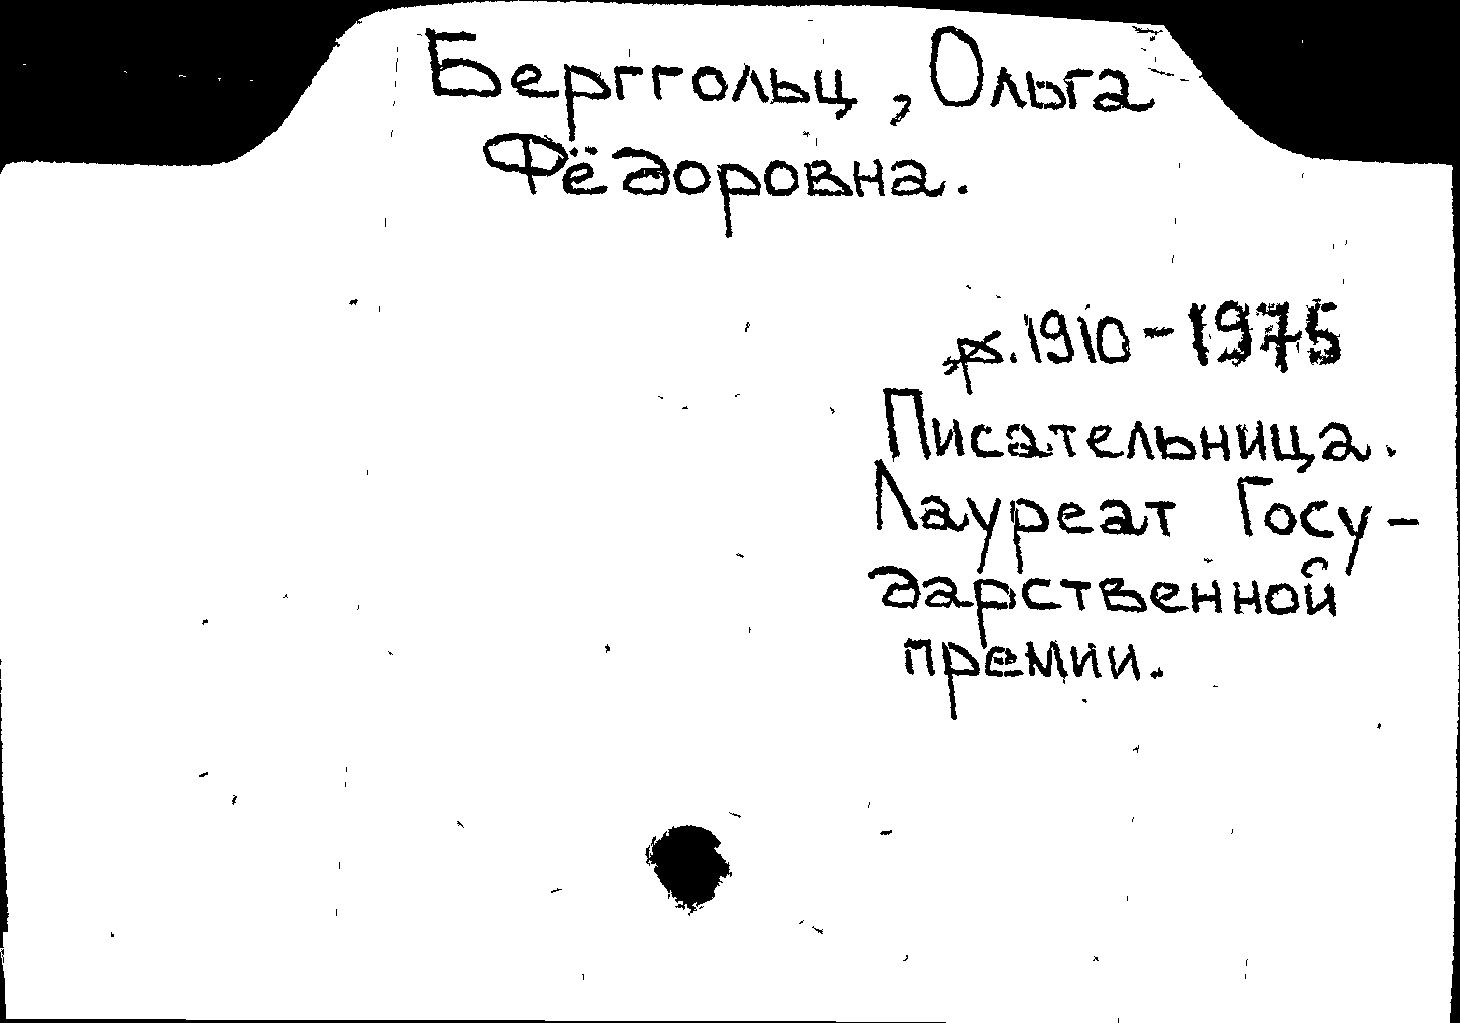 Берггольц, Ольга
Фёдоровна.
р. 1910-1975
Писательница.
Лауреат Госу-
дарственной
премии.